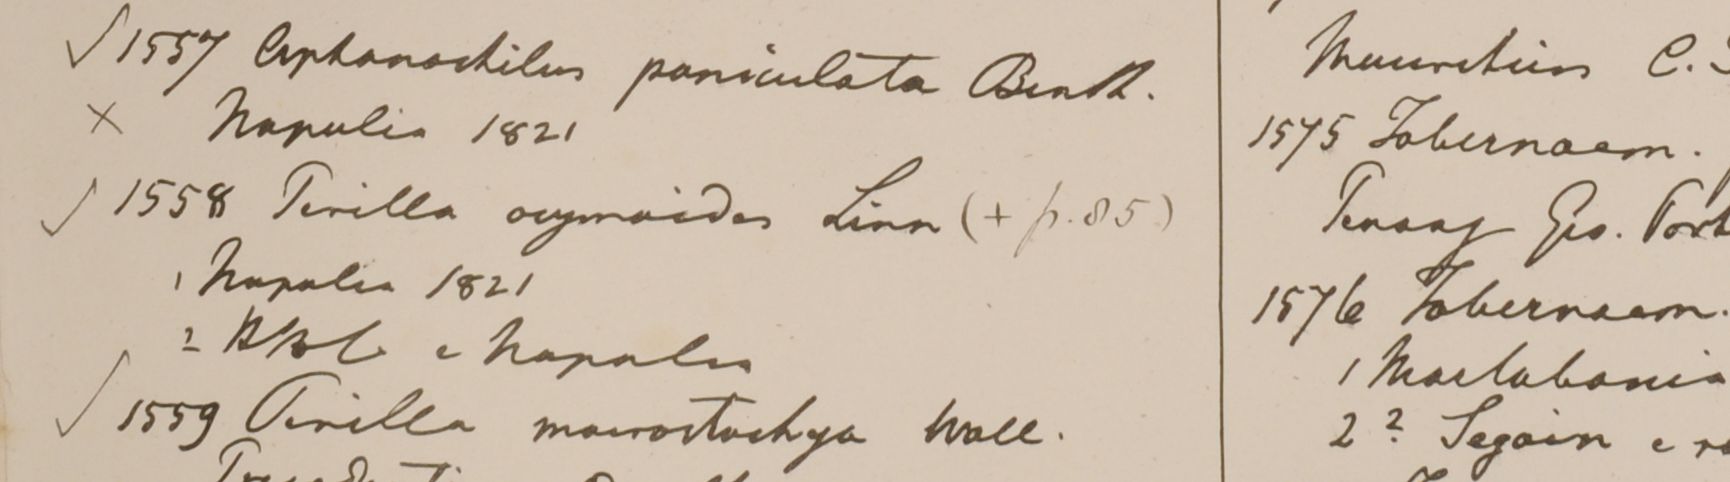 ✓ 1557 Cyphanochilus paniculata Benth.
× Napulia 1821
✓ 1558 Perilla ocymoides Linn (+ p. 85)
1 Napalia 1821
2 HBC e Napalia
✓ 1559 Perilla macrostachya Wall.
Mauritius C.
1575 Tabernaem.
Penang Geo. Port
1576 Tabernaem.
1 Martabania
2? Segain e